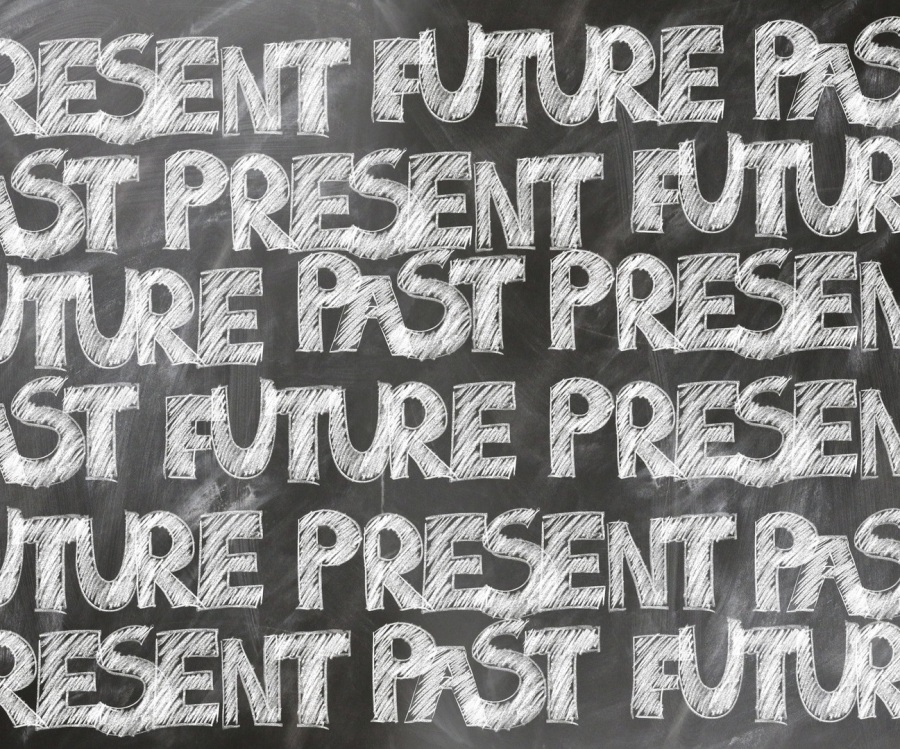 RESENT FUTURE PAS
AST PRESENT FUTUR
UTURE PAST PRESEN
AST FUTURE PRESEN
UTURE PRESENT PAS
RESENT PAST FUTUR